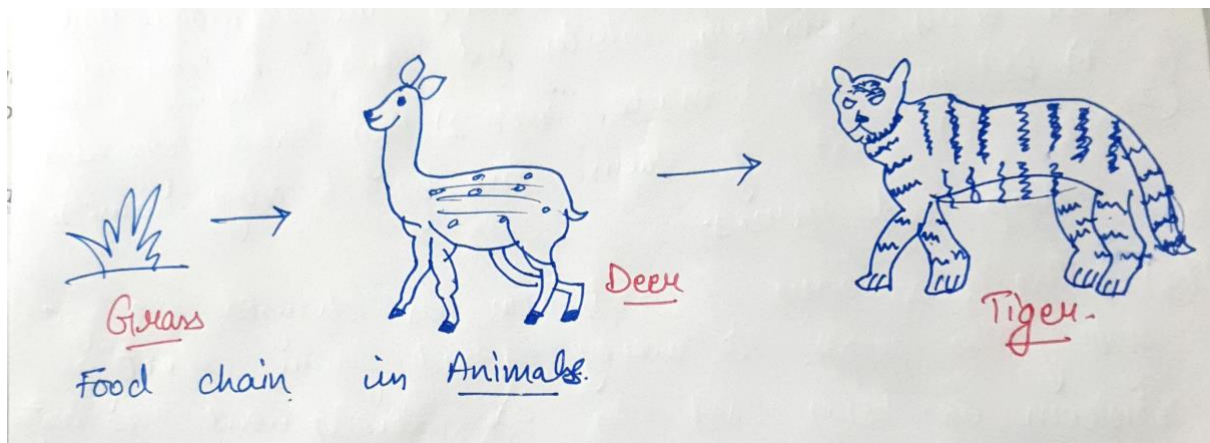 Grass
Deer
Tiger.
Food chain in Animals.